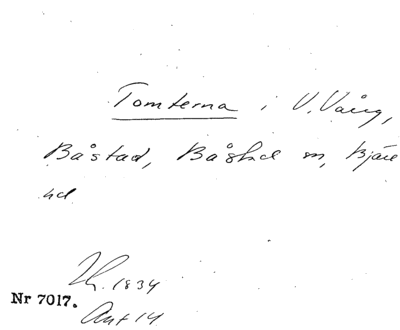 Tomterna i V. Vång,
Båstad, Båstad sn, Bjäre
hd
Th. 1834
Nr 7017.
Ant 14